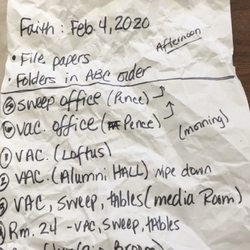 Faith: Feb 4, 2020
Afternoon
• File papers
• Folders in ABC order
⑤ sweep office (Pence)
⑥ vac. office (Pence)
(morning)
① VAC. (Loftus)
② VAC. (Alumni HALL) wipe down
③ VAC, sweep, tables (media Room)
Rm. 24 - VAC, sweep, tables